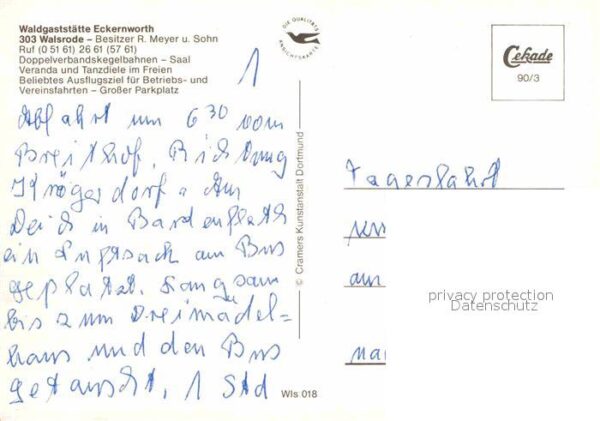 Waldgaststätte Eckernworth
303 Walsrode – Besitzer R. Meyer u. Sohn
Ruf (0 51 61) 26 61 (57 61)
Doppelverbandskegelbahnen – Saal
Veranda und Tanzdiele im Freien
Beliebtes Ausflugsziel für Betriebs- und
Vereinsfahrten – Großer Parkplatz
DIE QUALITÄTS
ANSICHTSKARTE
Cekade
90/3
1
Abfahrt um 6 30 vom
Breithof, Richtung
Krögerdorf a Am
Deich in Bardenfleth
ein Luftsack am Bus
geplatzt. Langsam
bis zum Dreimädel=
haus und den Bus
getauscht, 1 Std
© Cramers Kunstanstalt Dortmund
Wls 018
Tagesfahrt
privacy protection
Datenschutz